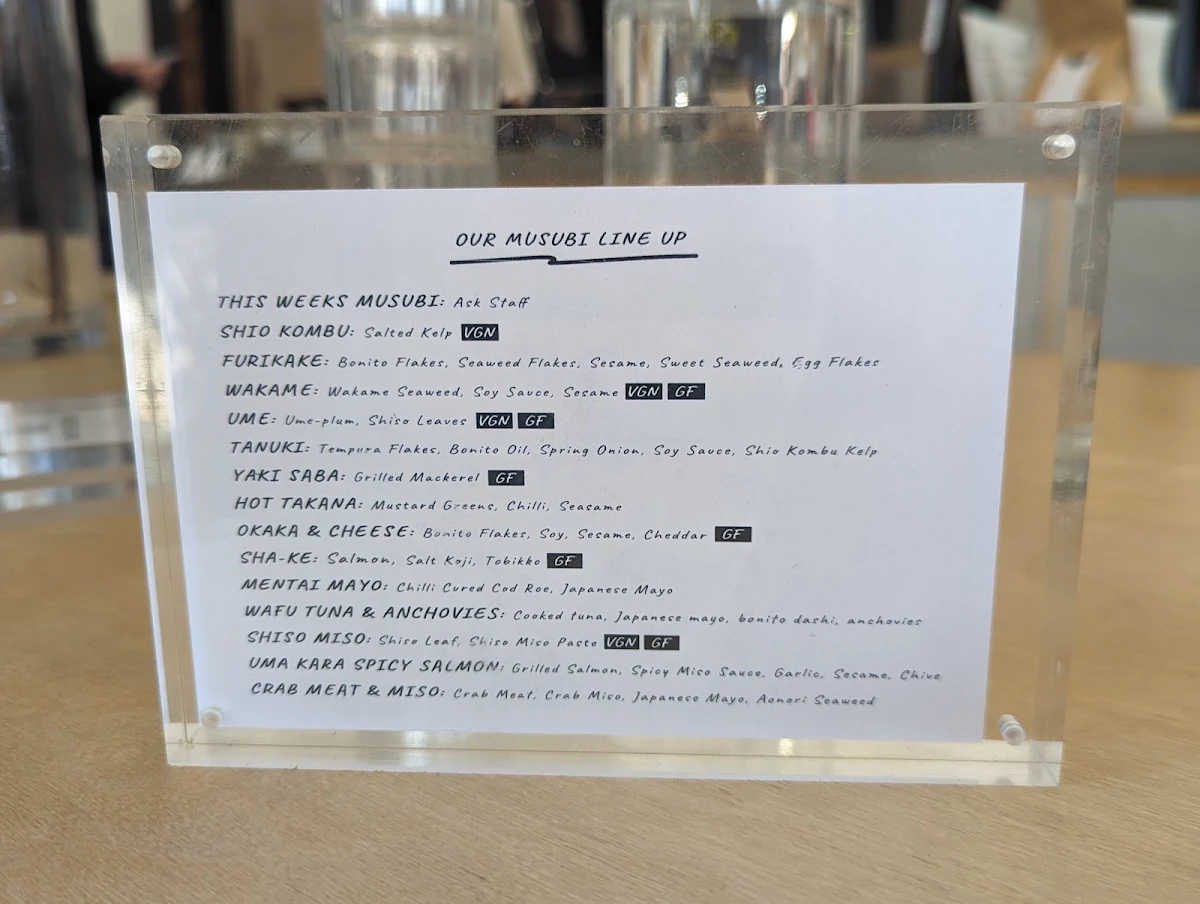 OUR MUSUBI LINE UP
THIS WEEKS MUSUBI: Ask Staff
SHIO KOMBU: Salted Kelp VGN
FURIKAKE: Bonito Flakes, Seaweed Flakes, Sesame, Sweet Seaweed, Egg Flakes
WAKAME: Wakame Seaweed, Soy Sauce, Sesame VGN GF
UME: Ume-plum, Shiso Leaves VGN GF
TANUKI: Tempura Flakes, Bonito Oil, Spring Onion, Soy Sauce, Shio Kombu Kelp
YAKI SABA: Grilled Mackerel GF
HOT TAKANA: Mustard Greens, Chilli, Seasame
OKAKA & CHEESE: Bonito Flakes, Soy, Sesame, Cheddar GF
SHA-KE: Salmon, Salt Koji, Tobikko GF
MENTAI MAYO: Chilli Cured Cod Roe, Japanese Mayo
WAFU TUNA & ANCHOVIES: Cooked tuna, Japanese mayo, bonito dashi, anchovies
SHISO MISO: Shiso Leaf, Shiso Miso Paste VGN GF
UMA KARA SPICY SALMON: Grilled Salmon, Spicy Miso Sauce, Garlic, Sesame, Chive
CRAB MEAT & MISO: Crab Meat, Crab Miso, Japanese Mayo, Aonori Seaweed